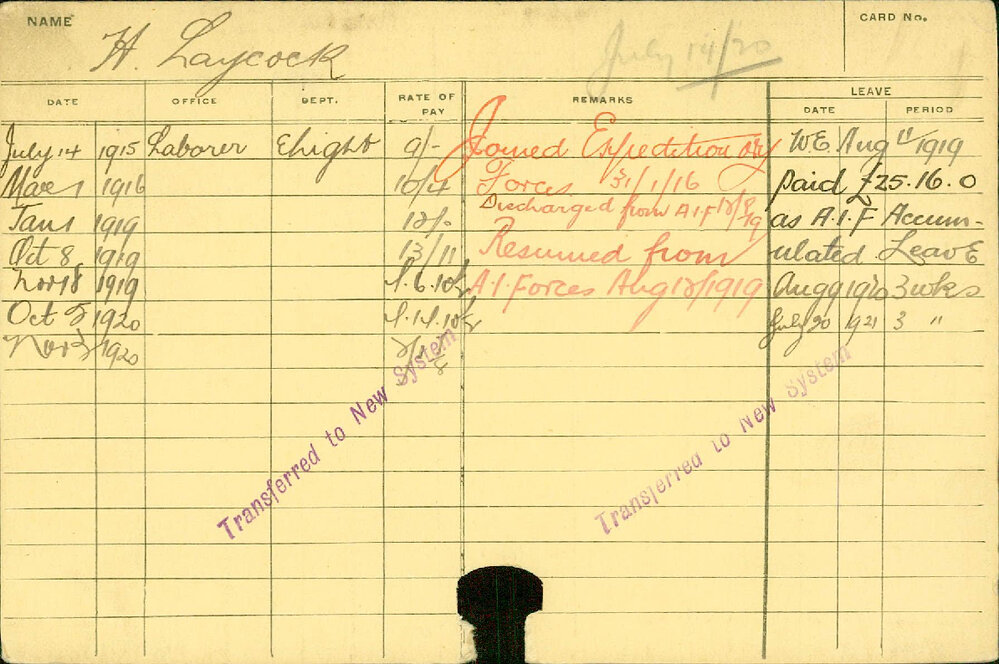 NAME
CARD No.
H. Laycock
July 14/20
DATE OFFICE DEPT. RATE OF PAY REMARKS LEAVE
DATE PERIOD
July 14 1915 Laborer 9/- Joined Expeditionary W.E. Aug 11/1919
1916 10/4 Forces 31/1/16 paid £25.16.0
Discharged from A.I.F 12/8/19
Jan 1 1919 12/- as A.I.F Accum-
Oct 8 1919 13/11 Resumed from ulated Leave
Nov 18 1919 A.I. Forces Aug 12/1919 Aug 9 1920 3 wks
Oct 5 1920 July 30 1921 3 "
Nov 1920
Transferred to New System
Transferred to New System